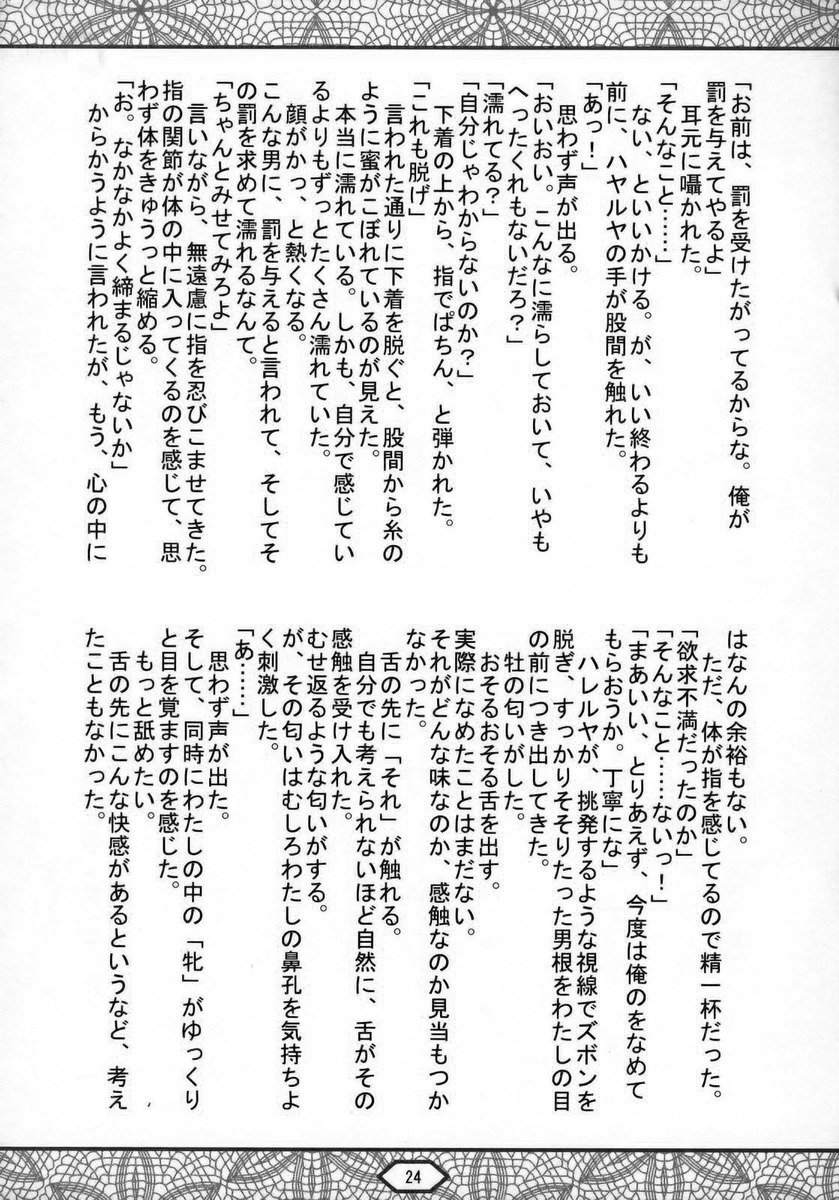 「お前は、罰を受けたがってるからな。俺が
罰を与えてやるよ」
耳元に囁かれた。
「そんなこと……」
ない、といいかける。が、いい終わるよりも
前に、ハヤルヤの手が股間を触れた。
「あっ！」
思わず声が出る。
「おいおい。こんなに濡らしておいて、いやも
へったくれもないだろ？」
「濡れてる？」
「自分じゃわからないのか？」
下着の上から、指でぱちん、と弾かれた。
「これも脱げ」
言われた通りに下着を脱ぐと、股間から糸の
ように蜜がこぼれているのが見えた。
本当に濡れている。しかも、自分で感じてい
るよりもずっとたくさん濡れていた。
顔がかっ、と熱くなる。
こんな男に、罰を与えると言われて、そしてそ
の罰を求めて濡れるなんて。
「ちゃんとみせてみろよ」
言いながら、無遠慮に指を忍びこませてきた。
指の関節が体の中に入ってくるのを感じて、思
わず体をきゅうっと縮める。
「お。なかなかよく締まるじゃないか」
からかうように言われたが、もう、心の中に
はなんの余裕もない。
ただ、体が指を感じてるので精一杯だった。
「欲求不満だったのか」
「そんなこと……ないっ！」
「まあいい、とりあえず、今度は俺のをなめて
もらおうか。丁寧にな」
ハレルヤが、挑発するような視線でズボンを
脱ぎ、すっかりそそりたった男根をわたしの目
の前につき出してきた。
牡の匂いがした。
おそるおそる舌を出す。
実際になめたことはまだない。
それがどんな味なのか、感触なのか見当もつか
なかった。
舌の先に「それ」が触れる。
自分でも考えられないほど自然に、舌がその
感触を受け入れた。
むせ返るような匂いがする。
が、その匂いはむしろわたしの鼻孔を気持ちよ
く刺激した。
「あ……」
思わず声が出た。
そして、同時にわたしの中の「牝」がゆっくり
と目を覚ますのを感じた。
もっと舐めたい。
舌の先にこんな快感があるというなど、考え
たこともなかった。
24